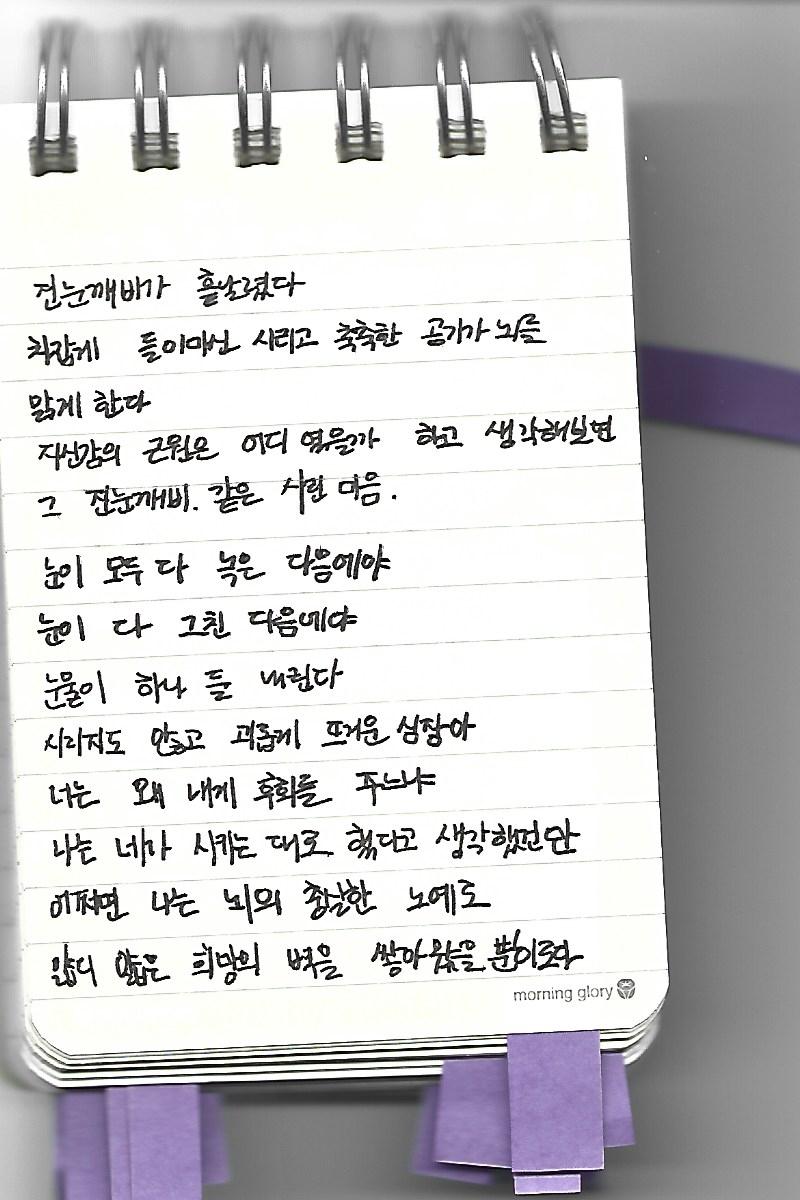 진눈깨비가 흩날렸다
차갑게 들이마신 시리고 축축한 공기가 뇌를
맑게 한다
자신감의 근원은 어디 였을까 하고 생각해보면
그 진눈깨비. 같은 시린 마음.
눈이 모두 다 녹은 다음에야
눈이 다 그친 다음에야
눈물이 하나 둘 내린다
시리지도 않고 괴롭게 뜨거운 심장아
너는 왜 내게 후회를 주느냐
나는 네가 시키는 대로 했다고 생각했건만
어쩌면 나는 뇌의 충실한 노예로
얇디 얇은 희망의 벽을 쌓아 왔을 뿐이로다
morning glory